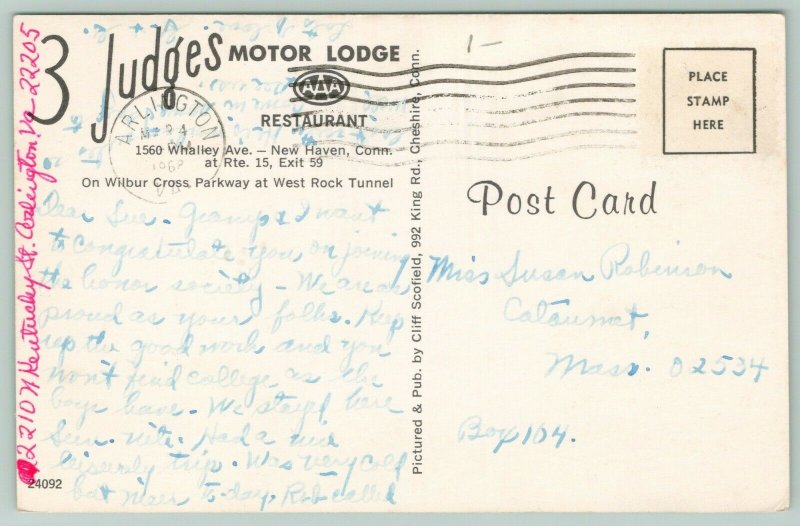 3 Judges MOTOR LODGE
AAA
RESTAURANT
1560 Whalley Ave. — New Haven, Conn.
at Rte. 15, Exit 59
On Wilbur Cross Parkway at West Rock Tunnel
ARLINGTON
1968
Dear Sue - Gramps & I want
to congratulate you on joining
the honor society - We are as
proud as your folks. Keep
up the good work and you
won't find college as the
boys have. We stayed here
Sun. nite. Had a nice
leisurely trip. Was very cold
but nicer to-day. Rob called
24092
2210 N Kentucky St. Arlington Va 22205
Pictured & Pub. by Cliff Scofield, 992 King Rd., Cheshire, Conn.
1-
PLACE
STAMP
HERE
Post Card
Miss Susan Robinson
Cataumet,
Mass. 02534
Box 104.